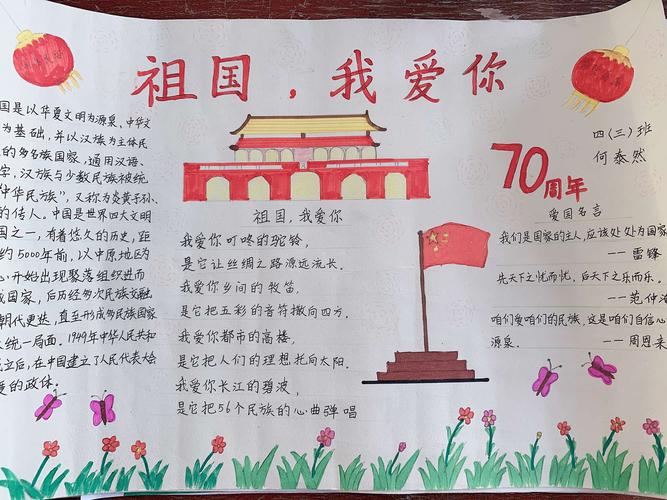 祖国，我爱你
国是以华夏文明为源泉、中华文
为基础，并以汉族为主体民
的多名族国家，通用汉语、
字，汉族与少数民族被统
中华民族"，又称为炎黄子孙、
的传人。中国是世界四大文明
国之一，有着悠久的历史，距
约5000年前，以中原地区为
心开始出现聚落组织进而
成国家，后历经多次民族交融
朝代更迭，直至形成多民族国家
大统一局面。1949年中华人民共和
成立后，在中国建立了人民代表大会
度的政体。
祖国，我爱你
我爱你叮咚的驼铃，
是它让丝绸之路源远流长.
我爱你乡间的牧笛，
是它把五彩的音符撒向四方.
我爱你都市的高楼，
是它把人们的理想托向太阳.
我爱你长江的碧波，
是它把56个民族的心曲弹唱
四(三)班
何泰然
70周年
爱国名言
我们是国家的主人，应该处处为国家
——雷锋
先天下之忧而忧，后天下之乐而乐.
——范仲
咱们爱咱们的民族，这是咱们自信心
源泉.——周恩来